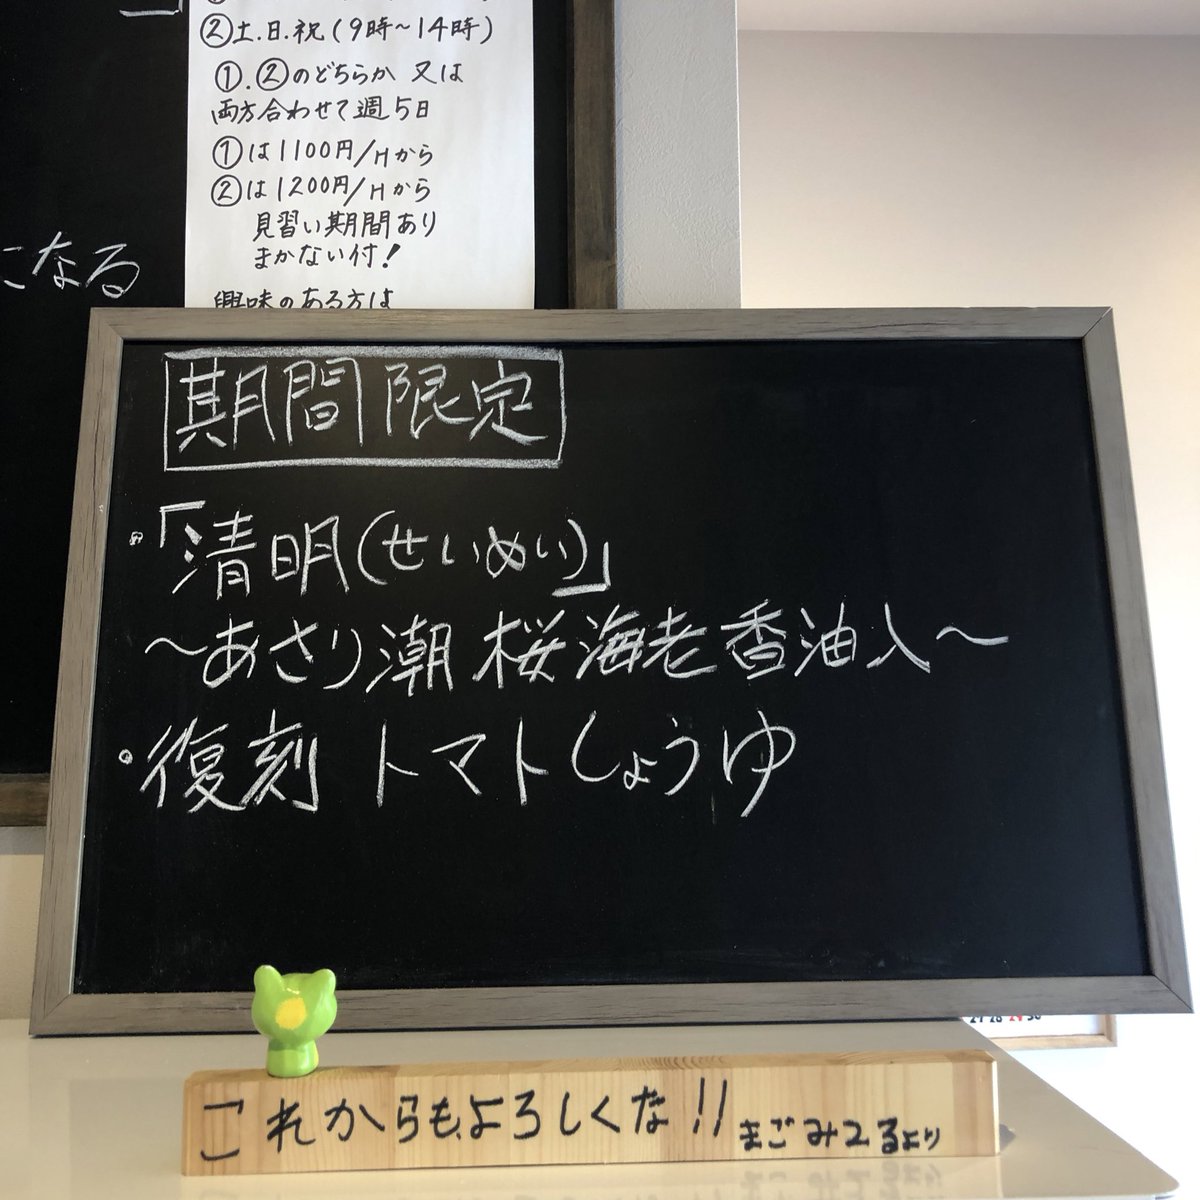 ②土.日.祝(9時〜14時)
①.②のどちらか 又は
両方合わせて週5日
①は1100円/Hから
②は1200円/Hから
見習い期間あり
まかない付!
興味のある方は
になる
期間限定
・「清明(せいめい)」
〜あさり潮 桜海老香油入〜
・復刻 トマトしょうゆ
27 28 29 30
これからもよろしくな!! まごみてるより